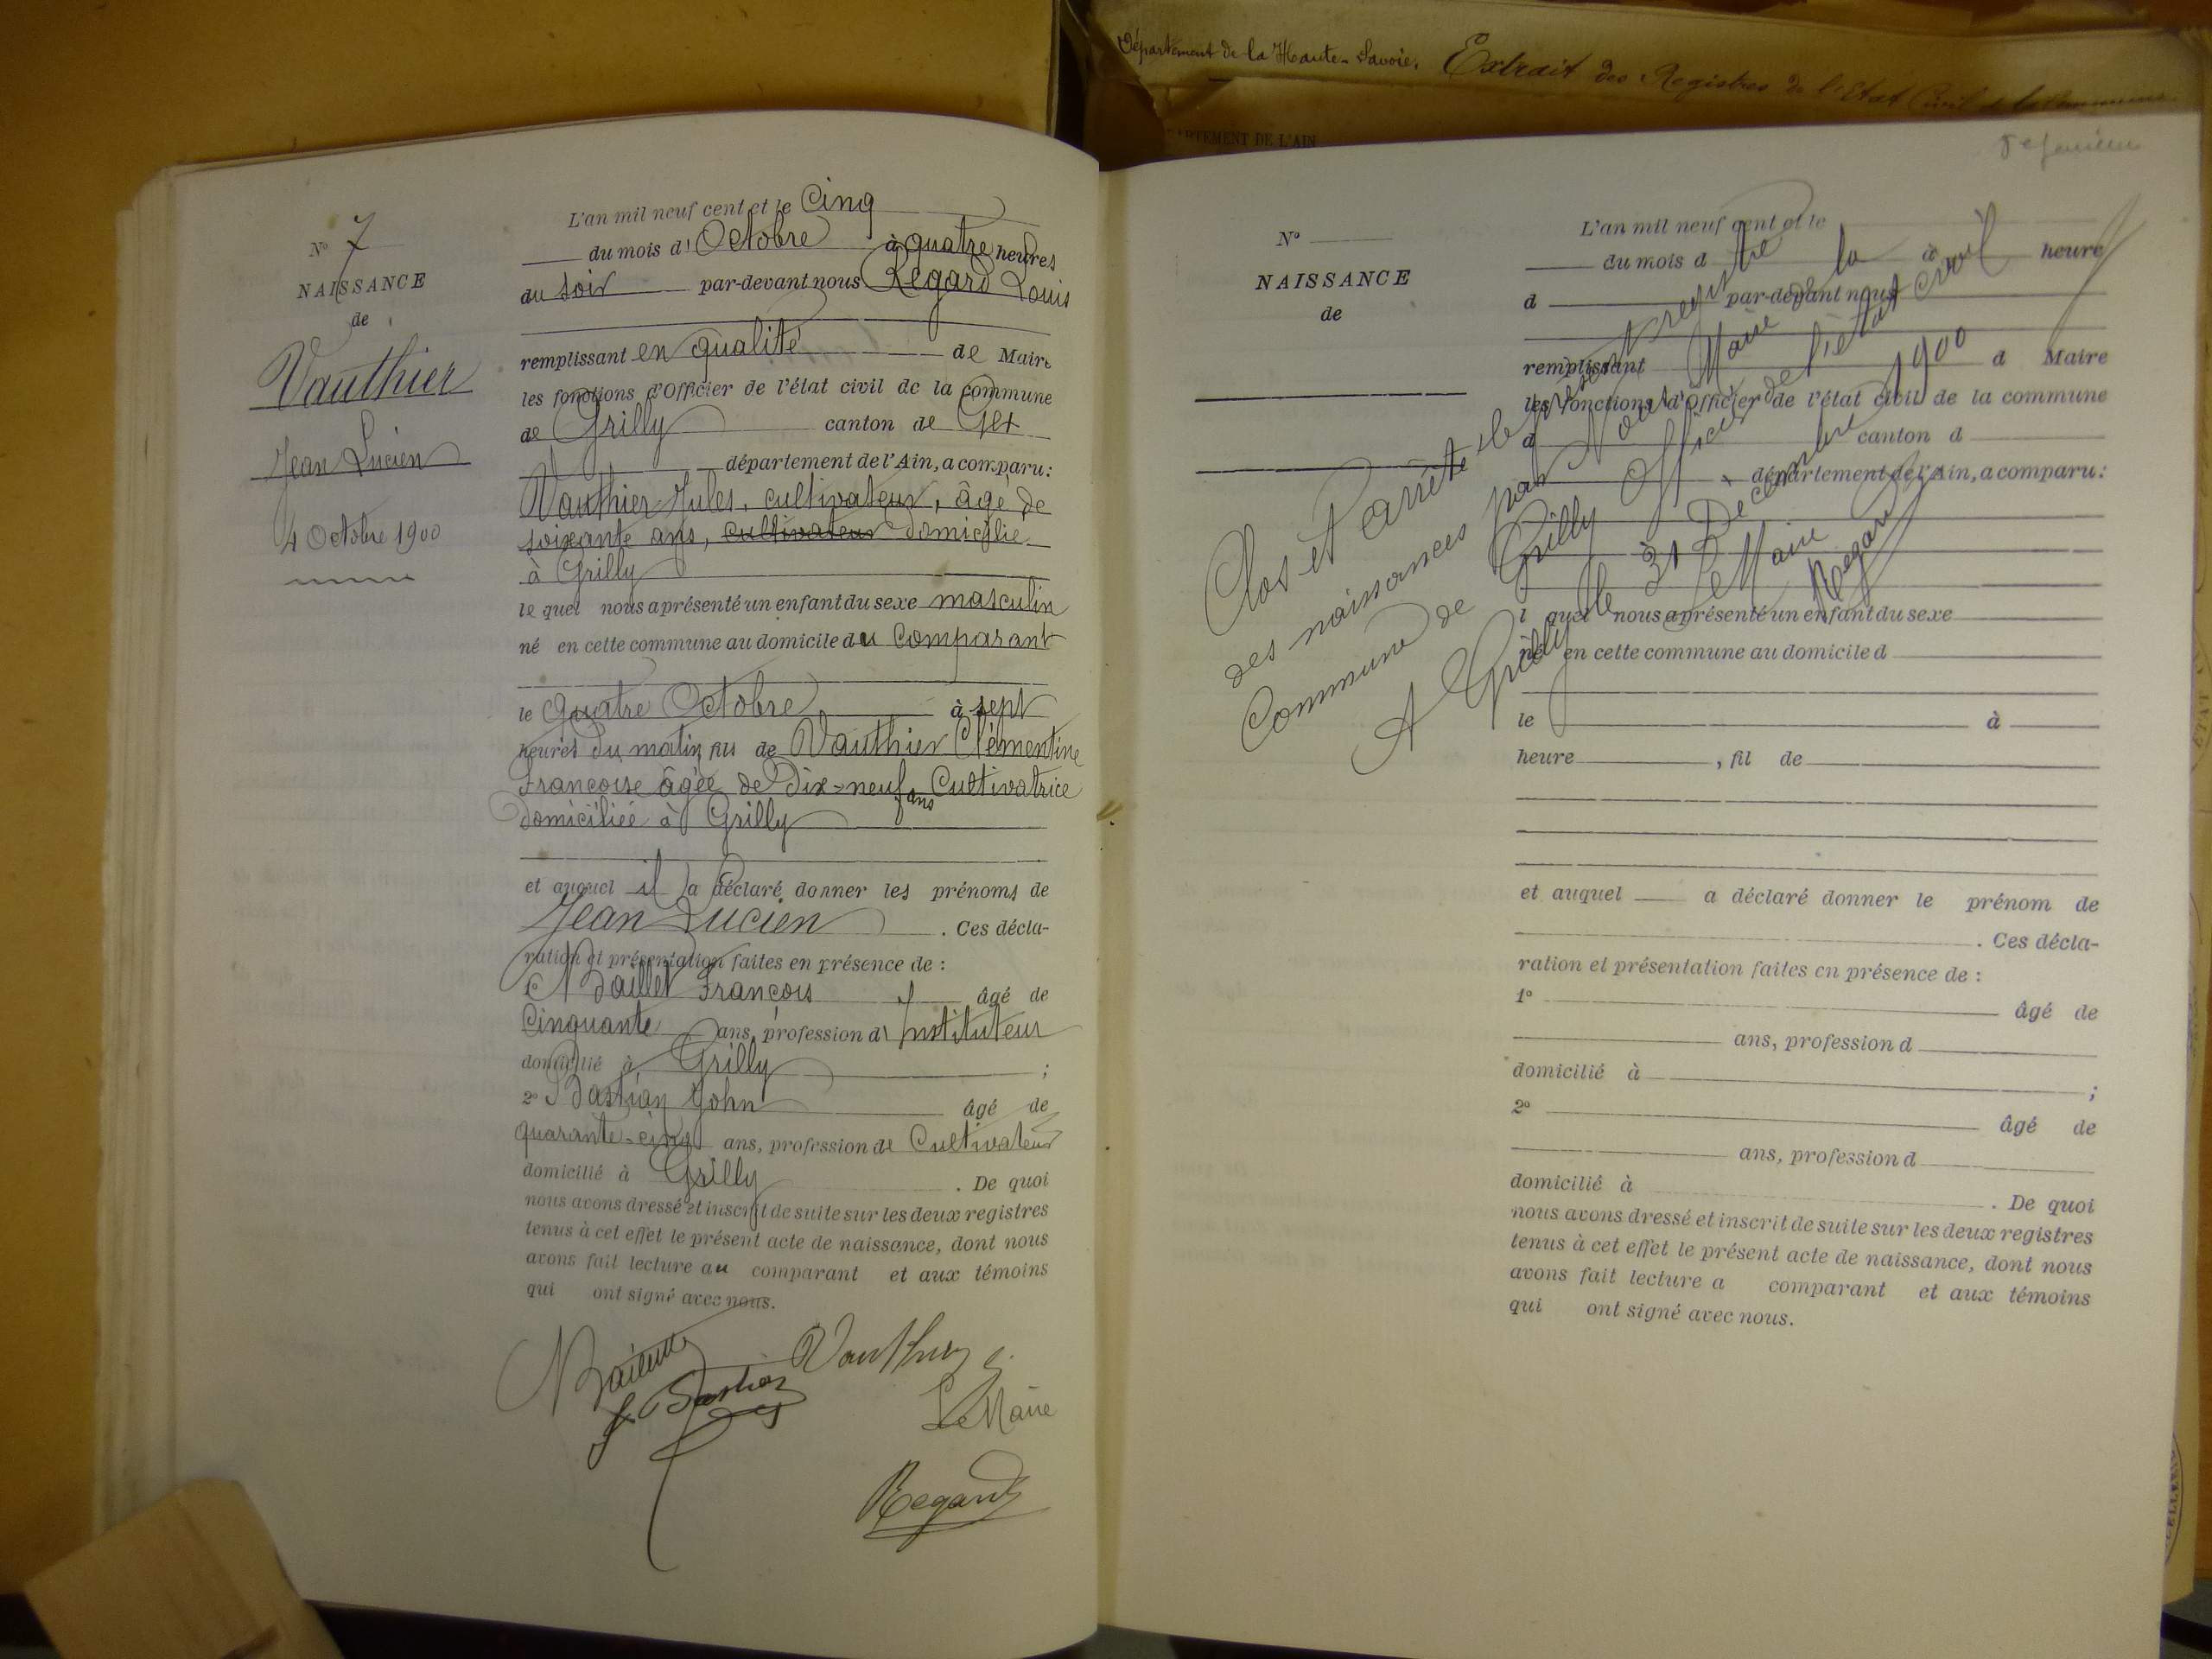 Département de la Haute-Savoie. Extrait des Registres de l'Etat Civil de la Commune
PARTEMENT DE L'AIN
N° 7
NAISSANCE
de
Vauthier
Jean Lucien
4 Octobre 1900
L'an mil neuf cent et le Cinq
du mois d' Octobre à quatre heures
du soir par-devant nous Regard Louis
remplissant en qualité de Maire
les fonctions d'Officier de l'état civil de la commune
de Grilly canton de Gex
département de l'Ain, a comparu:
Vauthier Jules, cultivateur, âgé de
soixante ans, cultivateur domicilié
à Grilly
le quel nous a présenté un enfant du sexe masculin
né en cette commune au domicile du Comparant
le quatre Octobre à sept
heures du matin, fils de Vauthier Clémentine
Françoise âgée de Dix-neuf ans Cultivatrice
domiciliée à Grilly
et auquel il a déclaré donner les prénoms de
Jean Lucien. Ces décla-
ration et présentation faites en présence de:
Baillet François âgé de
Cinquante ans, profession d' Instituteur
domicilié à Grilly;
2° Bastian John âgé de
quarante-cinq ans, profession de Cultivateur
domicilié à Grilly. De quoi
nous avons dressé et inscrit de suite sur les deux registres
tenus à cet effet le présent acte de naissance, dont nous
avons fait lecture au comparant et aux témoins
qui ont signé avec nous.
Vauthier J.
J. Bastian
Le Maire
Regard
N°
NAISSANCE
de
L'an mil neuf cent et le
du mois d à heure
d par-devant nous
remplissant d Maire
les fonctions d'Officier de l'état civil de la commune
d canton d
département de l'Ain, a comparu:
l quel nous a présenté un enfant du sexe
né en cette commune au domicile d
le à
heure, fil de
et auquel a déclaré donner le prénom de
. Ces décla-
ration et présentation faites en présence de:
1° âgé de
ans, profession d
domicilié à ;
2° âgé de
ans, profession d
domicilié à . De quoi
nous avons dressé et inscrit de suite sur les deux registres
tenus à cet effet le présent acte de naissance, dont nous
avons fait lecture a comparant et aux témoins
qui ont signé avec nous.
Clos et arrêté le présent registre
des naissances par Nous Maire de la
Commune de Grilly Officier de l'état civil
A Grilly le 31 Décembre 1900
Le Maire
Regard